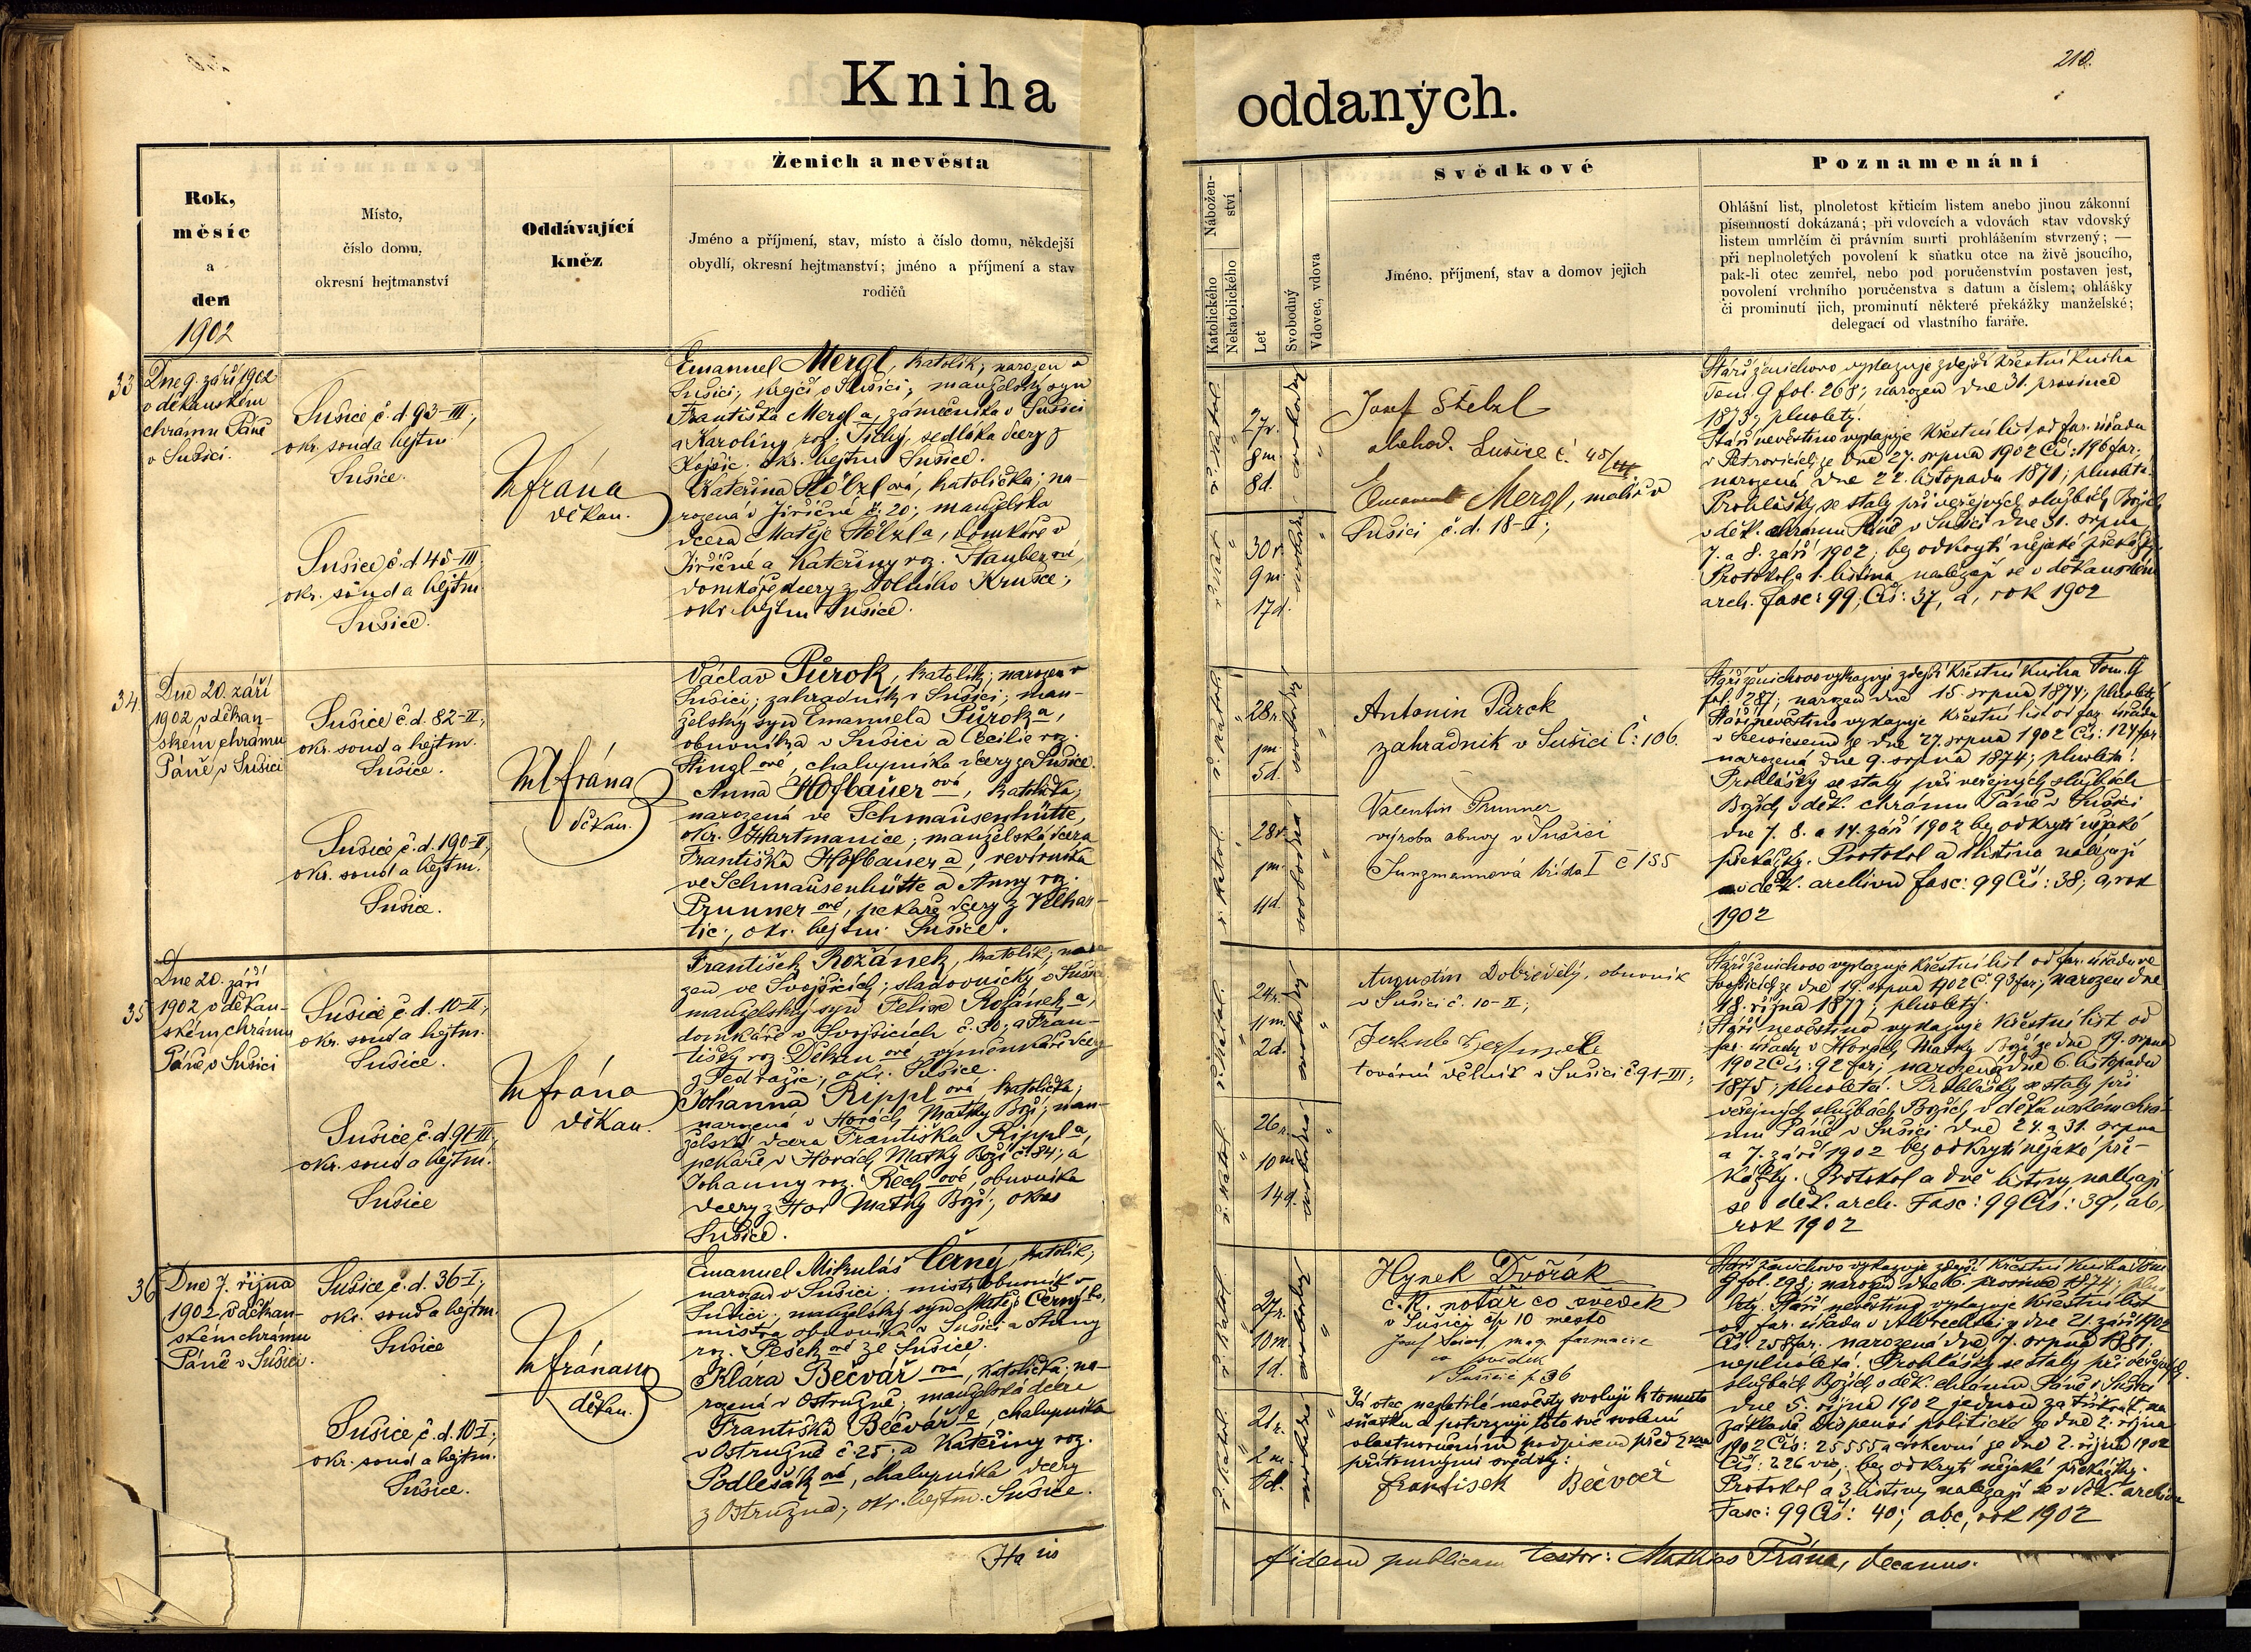 Kniha oddaných.
210.
Rok,
měsíc
a
den
1902
Místo,
číslo domu,
okresní hejtmanství
Oddávající
kněz
Ženich a nevěsta
Jméno a příjmení, stav, místo a číslo domu, někdejší
obydlí, okresní hejtmanství; jméno a příjmení a stav
rodičů
Nábožen-
ství
Katolického
Nekatolického
Let
Svobodný
Vdovec, vdova
Svědkové
Jméno, příjmení, stav a domov jejich
Poznamenání
Ohlášní list, plnoletost křticím listem anebo jinou zákonní
písemností dokázaná; při vdovcích a vdovách stav vdovský
listem umrlčím či právním smrti prohlášením stvrzený; —
při neplnoletých povolení k sňatku otce na živě jsoucího,
pak-li otec zemřel, nebo pod poručenstvím postaven jest,
povolení vrchního poručenstva s datum a číslem; ohlášky
či prominutí jich, prominutí některé překážky manželské;
delegací od vlastního faráře.
33
Dne 9. září 1902
v děkanském
chrámu Páně
v Sušici.
Sušice č. d. 93-III;
okr. soud a hejtm.
Sušice.
Sušice č. d. 45-III;
okr. soud a hejtm.
Sušice.
M Frána
děkan.
Emanuel Mergl, katolík, narozen v
Sušici, krejčí v Sušici; manželský syn
Františka Mergl a, zámečníka v Sušici
a Karoliny roz. Tichý, sedláka dcery z
okr. hejtm. Sušice.
Kateřina Stělzl ová, katolička; na-
rozená v Jiřičné č. 20; manželská
dcera Matěje Stělzl a, domkáře v
Jiřičné a Kateřiny roz. Stauber ové,
domkáře dcery z Dolního Krušce;
okr. hejtm. Sušice.
ř. katol.
27r.
8m.
8d.
svobodný
ř. katol.
30r.
9m.
17d.
svobodná
Josef Stelzl
obchod. Sušice č. 45/III
Emanuel Mergl, malíř v
Sušici č. d. 18-I;
Stáří ženichovo vykazuje zdejší křestní kniha
Tom. 9 fol. 268; narozen dne 31. prosince
1873; plnoletý.
Stáří nevěstino vykazuje křestní list od far. úřadu
v Petrovicích ze dne 27. srpna 1902 Čís: 196 far.;
narozená dne 22. listopadu 1871; plnoletá.
Prohlášky se staly při veřejných službách Božích
v děk. chrámu Páně v Sušici dne 31. srpna,
7. a 8. září 1902; bez odkrytí nějaké překážky.
Protokol a 1. listina nalezají se v děkanském
arch. fasc: 99; Čís: 37, a, rok 1902
34
Dne 20. září
1902 v děkan-
ském chrámu
Páně v Sušici
Sušice č. d. 82-II;
okr. soud a hejtm.
Sušice.
Sušice č. d. 190-II;
okr. soud a hejtm.
Sušice.
M Frána
děkan.
Václav Půrok, katolík; narozen v
Sušici; zahradník v Sušici; man-
želský syn Emanuela Půrok a,
obuvníka v Sušici a Cecilie roz.
Stingl ové, chalupníka dcery ze Sušice.
Anna Hofbauer ová, katolička;
narozená ve Schmausenhütte,
okr. Hartmanice; manželská dcera
Františka Hofbauer a, revírníka
ve Schmausenhütte a Anny roz.
Prunner ové, pekaře dcery z Velhar-
tic; okr. hejtm. Sušice.
ř. katol.
28r.
1m.
5d.
svobodný
ř. katol.
28r.
1m.
11d.
svobodná
Antonín Půrok
zahradník v Sušici č: 106.
Valentin Prunner
výroba obuvy v Sušici
Jungmannová třída I č 155
Stáří ženichovo vykazuje zdejší křestní kniha Tom. 9
fol. 287; narozen dne 15. srpna 1874; plnoletý
Stáří nevěstino vykazuje křestní list od far. úřadu
v Seewiesen ze dne 27. srpna 1902 Čís: 127 far.
narozená dne 9. srpna 1874; plnoletá.
Prohlášky se staly při veřejných službách
Božích v děk. chrámu Páně v Sušici
dne 7. 8. a 14. září 1902 bez odkrytí nějaké
překážky. Protokol a 1 listina nalezají
v děk. archivu fasc: 99 Čís: 38; a, rok
1902
35
Dne 20. září
1902 v děkan-
ském chrámu
Páně v Sušici
Sušice č. d. 10-II;
okr. soud a hejtm.
Sušice.
Sušice č. d. 91-III;
okr. soud a hejtm.
Sušice
M Frána
děkan.
František Rožánek, katolík; naro-
zen ve Svojšicích; sladovnický v Sušici
manželský syn Felixe Rožánek a,
domkáře v Svojšicích č. 30; a Fran-
tišky roz. Děkan ové, výměnkáře dcery
z Tedražic; okr. Sušice.
Johanna Rippl ová, katolička;
narozená v Horách Matky Boží; man-
želská dcera Františka Rippl a,
pekaře v Horách Matky Boží č. 84; a
Johanny roz. Rech ové, obuvníka
dcery z Hor Matky Boží; okres
Sušice.
ř. katol.
24r.
11m.
2d.
svobodný
ř. katol.
26r.
10m.
14d.
svobodná
Augustin Dobřevělý, obuvník
v Sušici č. 10-II;
tovární dělník v Sušici č. 91-III;
Stáří ženichovo vykazuje křestní list od far. úřadu ve
Svojšicích ze dne 19. srpna 1902 Č. 93 far; narozen dne
18. října 1877; plnoletý.
Stáří nevěstino vykazuje křestní list od
far. úřadu v Horách Matky Boží ze dne 19. srpna
1902 Čís: 92 far; narozená dne 6. listopadu
1875; plnoletá. Prohlášky se staly při
veřejných službách Božích v děkanském chrá-
mu Páně v Sušici dne 24. a 31. srpna
a 7. září 1902 bez odkrytí nějaké pře-
kážky. Protokol a dvě listiny nalezají
se v děk. arch. Fasc: 99 Čís: 39, ab,
rok 1902
36
Dne 7. října
1902 v děkan-
ském chrámu
Páně v Sušici.
Sušice č. d. 36-I;
okr. soud a hejtm.
Sušice
Sušice č. d. 10-I;
okr. soud a hejtm.
Sušice.
M Frána
děkan.
Emanuel Mikuláš Černý, katolík;
narozen v Sušici; mistr obuvník v
Sušici; manželský syn Matěje Černý ho,
mistra obuvníka v Sušici a Anny
roz. Pešek ové ze Sušice.
Klára Bečvář ová, katolička; na-
rozená v Ostružně; manželská dcera
Františka Bečvář e, chalupníka
v Ostružně č. 25; a Kateřiny roz.
Podlešák ové, chalupníka dcery
z Ostružna; okr. hejtm. Sušice.
ř. katol.
27r.
10m.
1d.
svobodný
ř. katol.
21r.
2m.
svobodná
Hynek Dvořák
c. k. notář co svědek
v Sušici čp 10 město
Josef mag. farmacie
co svědek
v Sušici č. 36
Já otec nezletilé nevěsty svoluji k tomuto
sňatku a potvrzuji toto své svolení
vlastnoručním podpisem před 2 ma
přítomnými svědky:
František Bečvář
Stáří ženichovo vykazuje zdejší křestní kniha Tom.
9 fol. 298; narozen dne 6. prosince 1874; plno-
letý. Stáří nevěstino vykazuje křestní list
od far. úřadu v Albrechtci z dne 21. září 1902
Čís. 258 far. narozená dne 7. srpna 1881;
neplnoletá. Prohlášky se staly při veřejných
službách Božích v děk. chrámu Páně v Sušici
dne 5. října 1902 jednou za třikrát, na
základě dispensí politické ze dne 2. října
1902 Čís: 25555 a církevní ze dne 2. října 1902
Čís: 226 vic; bez odkrytí nějaké překážky.
Protokol a 3 listiny nalezají se v děk. archivu
Fasc: 99 Čís: 40; abc, rok 1902
In fidem publicam testor: Mathias Frána, decanus.